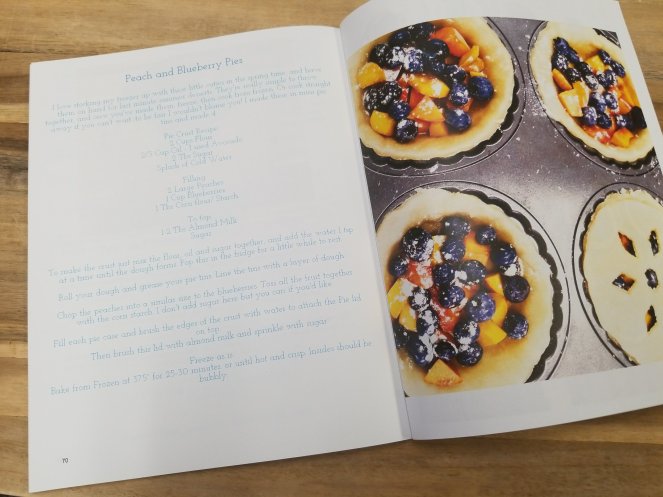 Peach and Blueberry Pies
I love stocking my freezer up with these little cuties in the spring time, and have
them on hand for last minute summer desserts. They're really simple to throw
together, and once you've made them, freeze, then cook from frozen. Or cook straight
away if you can't wait to be fair I wouldn't blame you! I made these in mini pie
tins and made 4
Pie Crust Recipe
2 Cups Flour
2/3 Cup Oil - I used Avocado
2 Tbs Sugar
Splash of Cold Water
Filling
2 Large Peaches
1 Cup Blueberries
1 Tbs Corn flour/ Starch
To top
1-2 Tbs Almond Milk
Sugar
To make the crust just mix the flour, oil and sugar together, and add the water 1 tsp
at a time until the dough forms. Pop this in the fridge for a little while to rest
Roll your dough, and grease your pie tins. Line the tins with a layer of dough
Chop the peaches into a similar size to the blueberries. Toss all the fruit together
with the corn starch. I don't add sugar here but you can if you'd like
Fill each pie case and brush the edges of the crust with water to attach the Pie lid
on top
Then brush this lid with almond milk and sprinkle with sugar
Freeze as is
Bake from Frozen at 375° for 25-30 minutes or until hot and crisp. Insides should be
bubbly
70